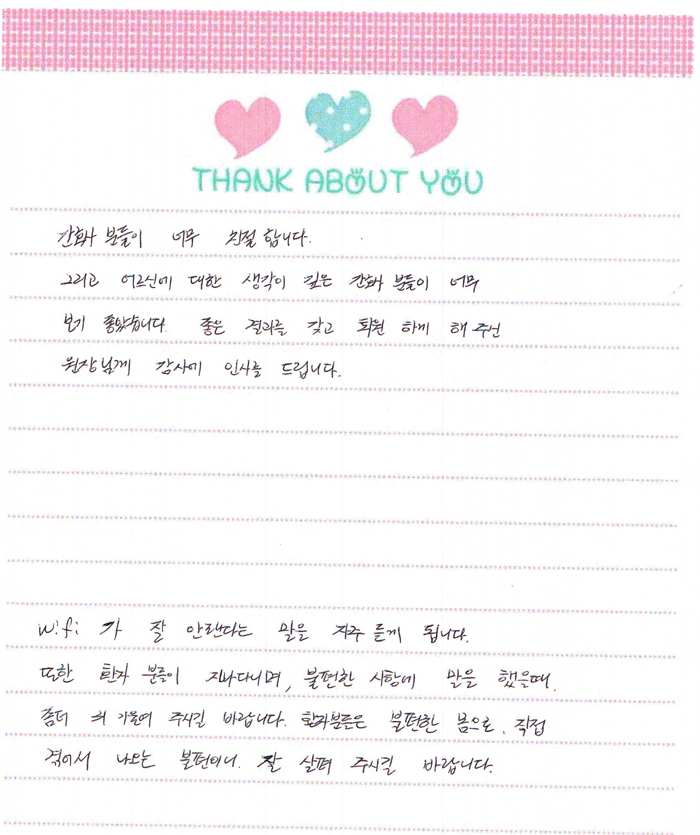 THANK ABOUT YOU
간호사 분들이 너무 친절 합니다.
그리고 어르신에 대한 생각이 깊은 간호사 분들이 너무
보기 좋았습니다. 좋은 결과를 갖고 퇴원 하게 해 주신
원장님께 감사에 인사를 드립니다.
wifi 가 잘 안된다는 말을 자주 듣게 됩니다.
또한 환자 분들이 지나다니며, 불편한 사항에 말을 했을때,
좀더 귀 기울여 주시길 바랍니다. 환자분들은 불편한 몸으로, 직접
겪어서 나오는 불편이니. 잘 살펴 주시길 바랍니다.